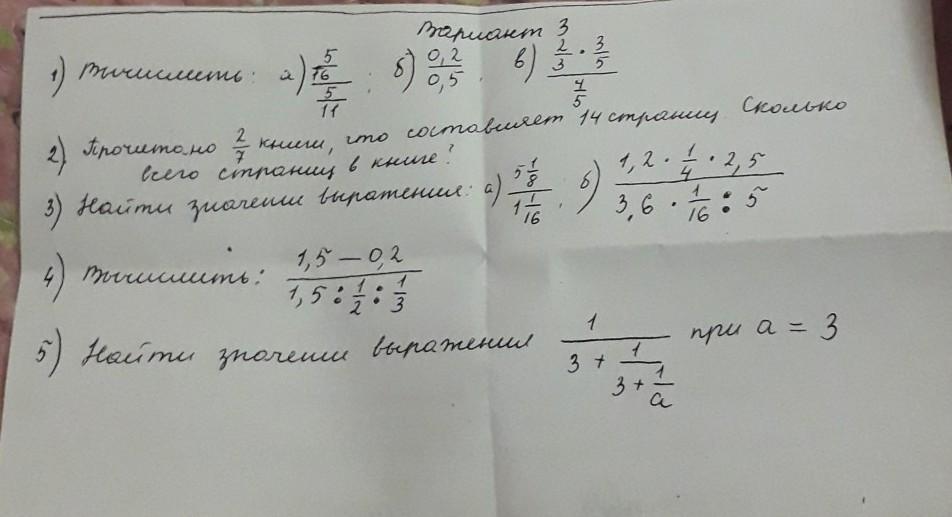 Вариант 3
1) Вычислить: а) \frac{\frac{5}{16}}{\frac{5}{11}}; б) \frac{0,2}{0,5}, в) \frac{\frac{2}{3} \cdot \frac{3}{5}}{\frac{4}{5}}
2) Прочитано \frac{2}{7} книги, что составляет 14 страниц. Сколько
всего страниц в книге?
3) Найти значении выражения: а) \frac{5\frac{1}{8}}{1\frac{1}{16}}, б) \frac{1,2 \cdot \frac{1}{4} \cdot 2,5}{3,6 \cdot \frac{1}{16} : 5}
4) Вычислить: \frac{1,5 - 0,2}{1,5 : \frac{1}{2} : \frac{1}{3}}
5) Найти значении выражения \frac{1}{3 + \frac{1}{3 + \frac{1}{a}}} при a = 3